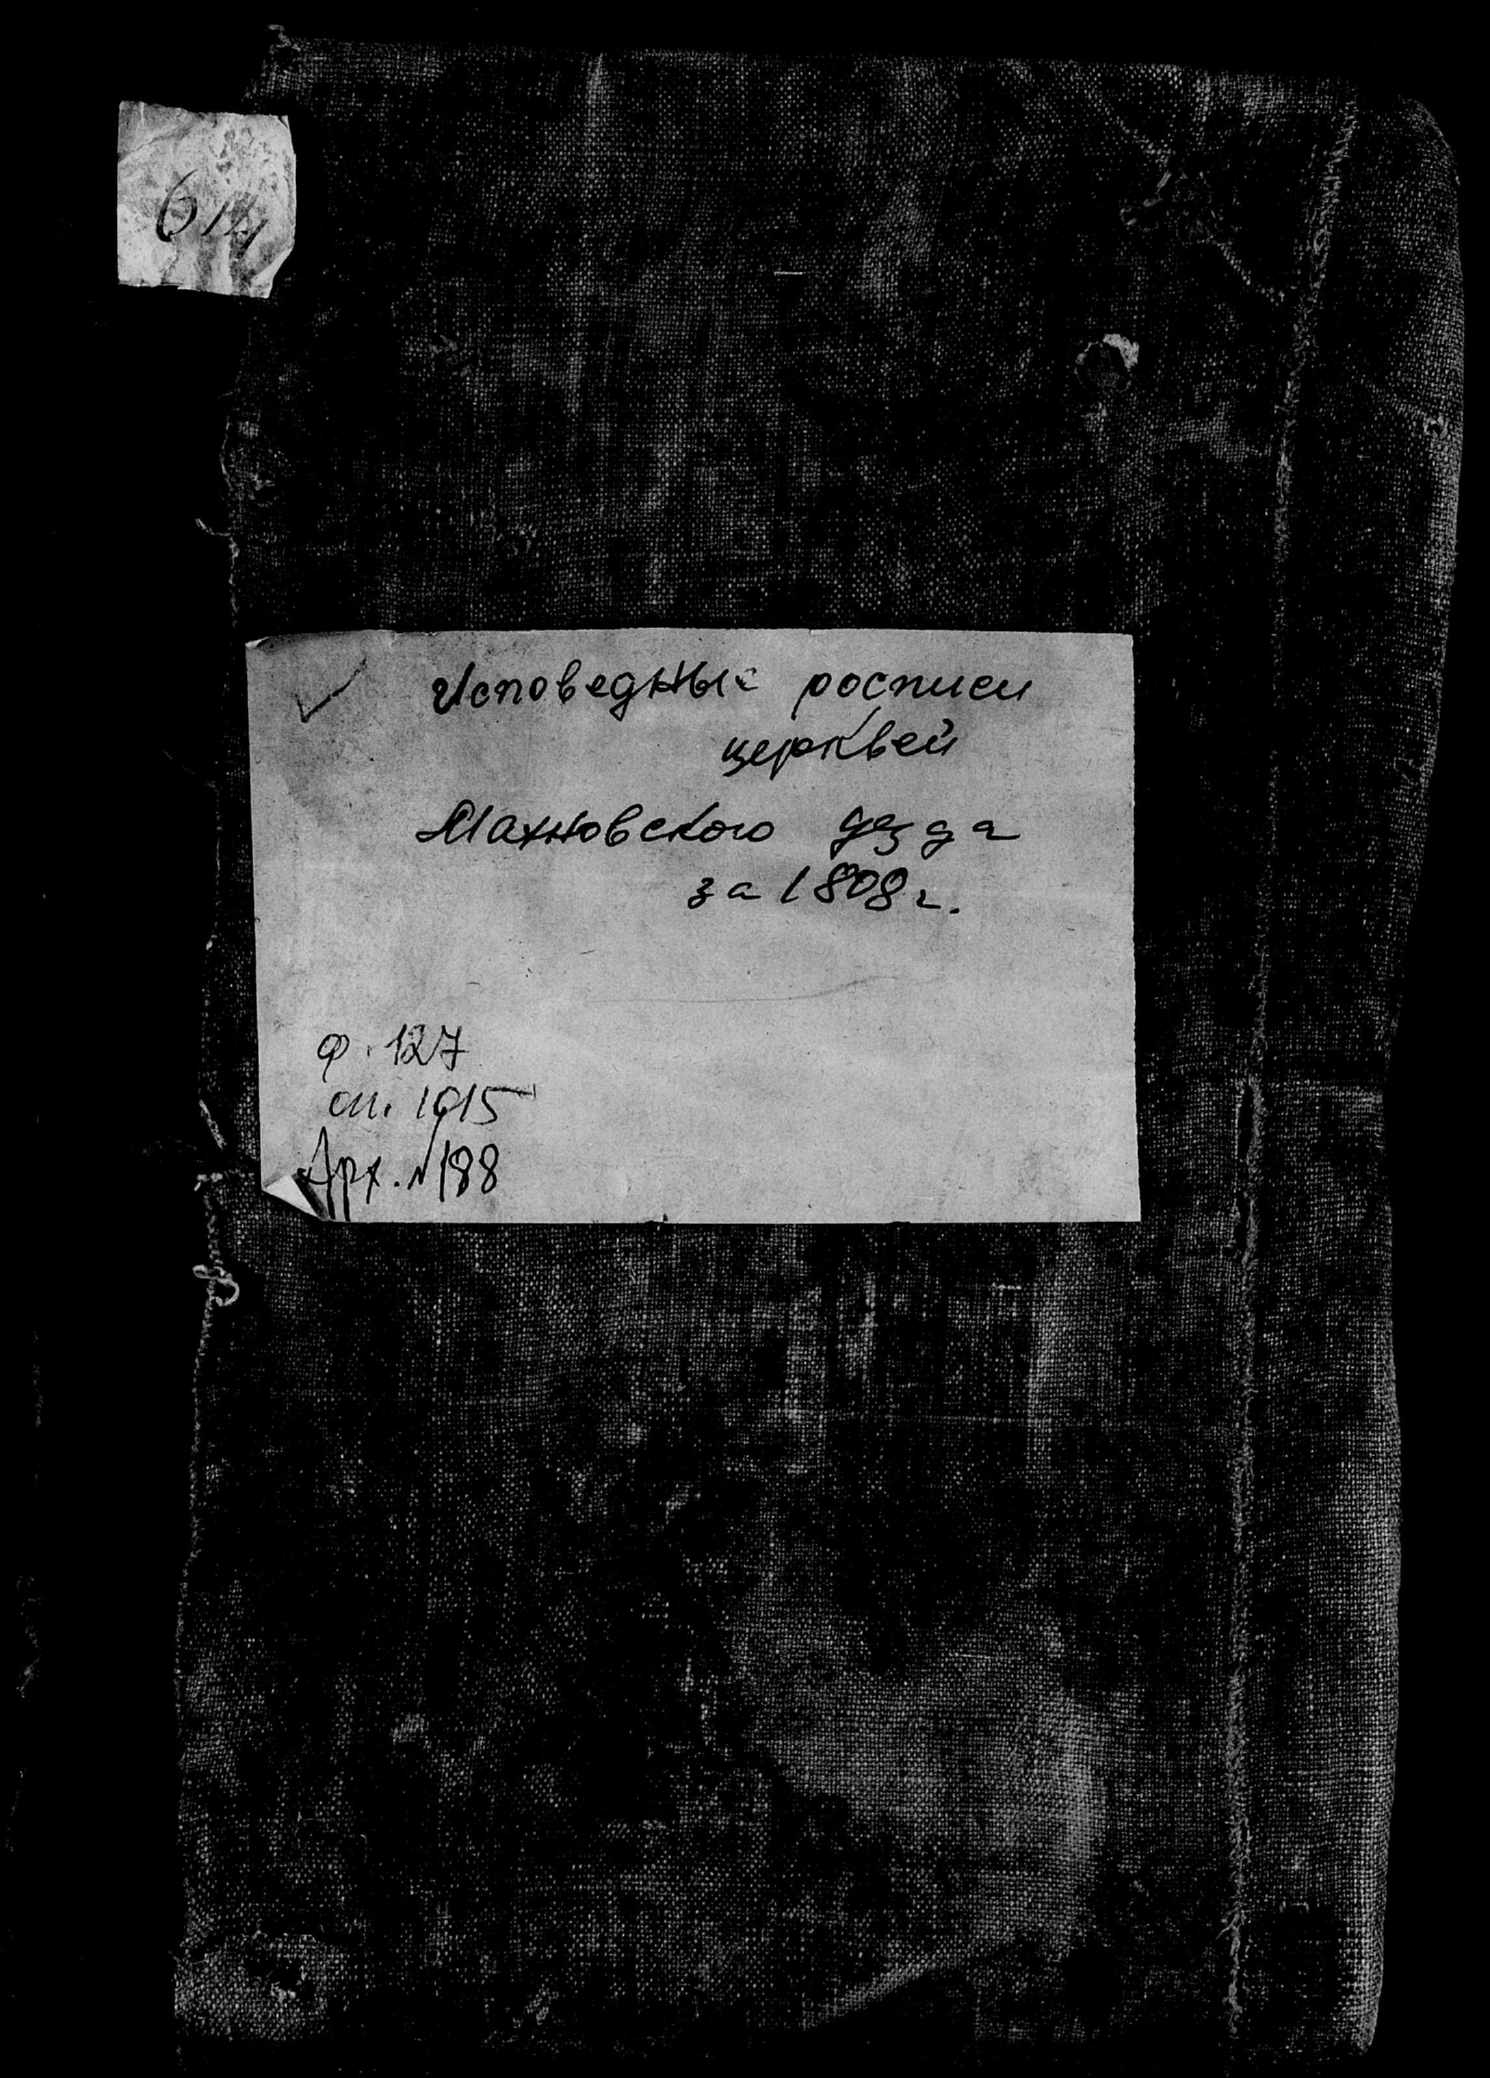 Исповедные росписи
церквей
Махновского уезда
за 1808 г.
ф. 127
оп. 1015
Арх. № 188